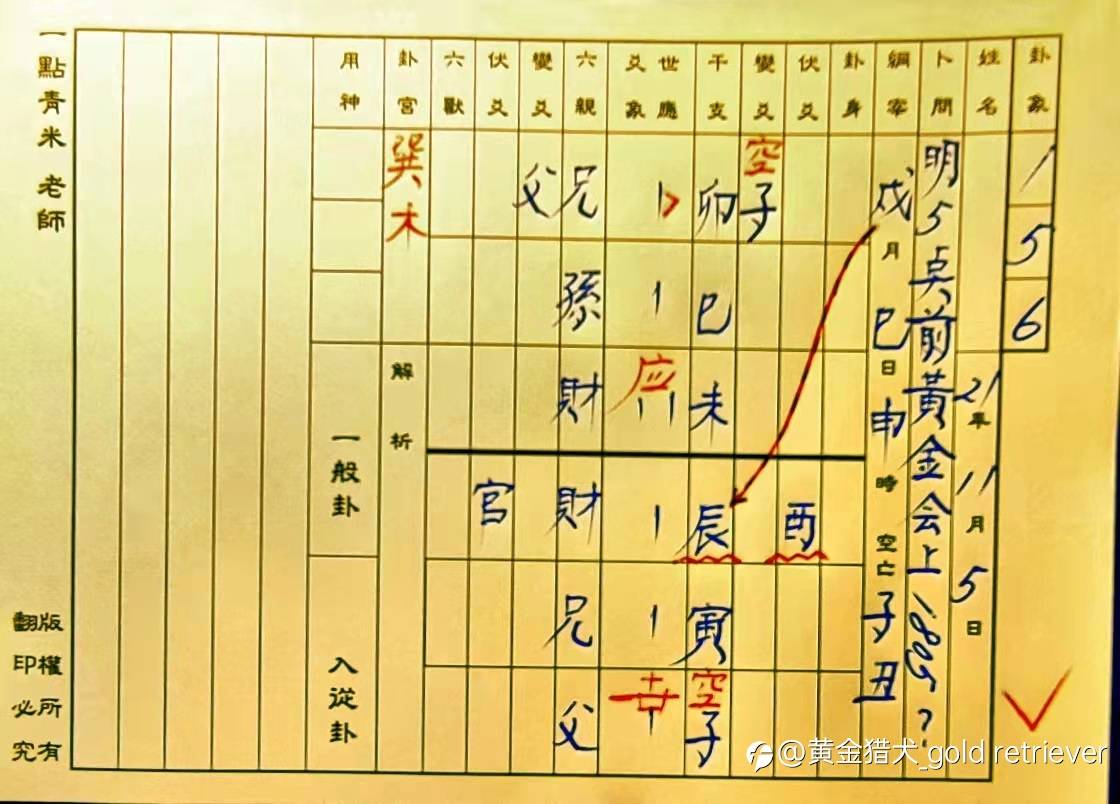 卦象
1
5
6
姓名
21年11月5日
卜問
明5点前黃金会上1805?
綱宰
戌月
巳日
申時
空亡
子丑
卦身
伏爻
酉
變爻
空
子
干支
卯
巳
未
辰
寅
空
子
世應
爻象
应
世
六親
兄
孫
財
財
兄
父
變爻
父
伏爻
官
六獸
卦宮
巽木
解析
用神
一般卦
入從卦
一點青米老師
版權所有
翻印必究
@黄金猎犬_gold retriever